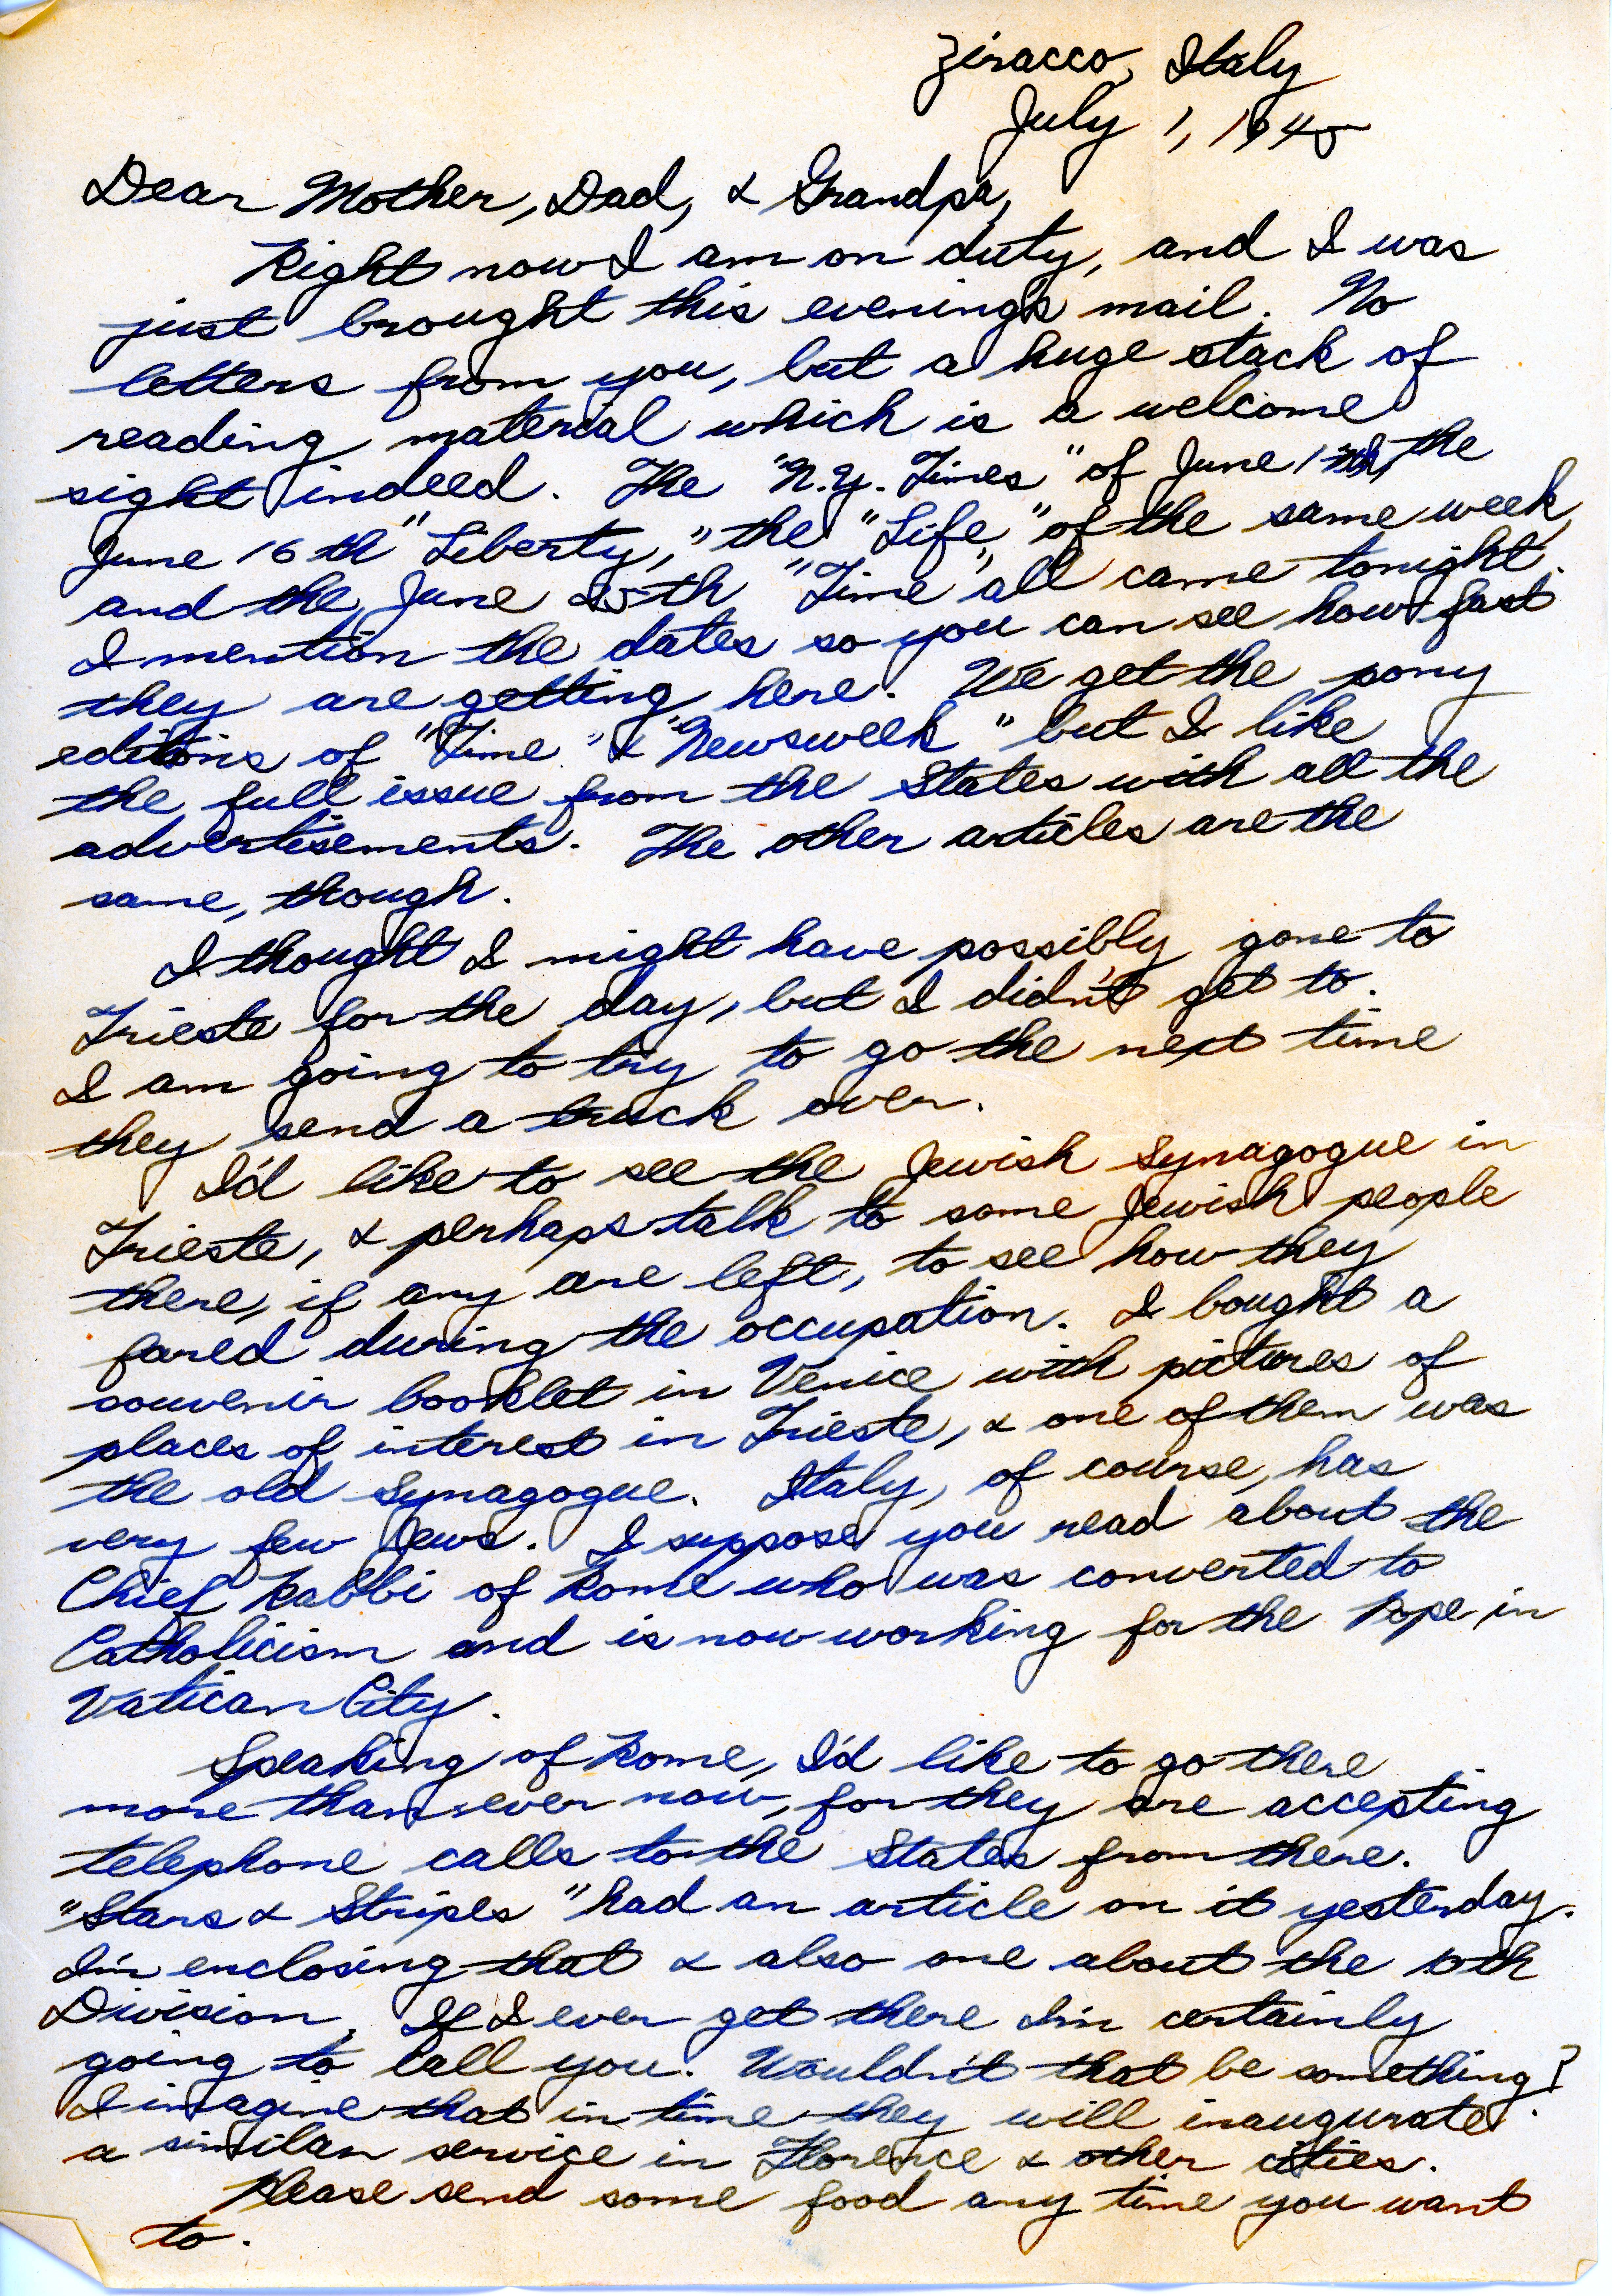 Ziracco, Italy
July 1, 1945
Dear Mother, Dad, & Grandpa,
Right now I am on duty, and I was
just brought this evening's mail. No
letters from you, but a huge stack of
reading material which is a welcome
sight indeed. The "N.Y. Times" of June the
June 16th "Liberty," the "Life" of the same week,
and the June 25th "Time" all came tonight.
I mention the dates so you can see how fast
they are getting here. We get the pony
editions of "Time" & "Newsweek" but I like
the full issue from the States with all the
advertisements. The other articles are the
same, though.
I thought I might have possibly gone to
Trieste for the day, but I didn't get to.
I am going to try to go the next time
they send a truck over.
I'd like to see the Jewish synagogue in
Trieste, & perhaps talk to some Jewish people
there, if any are left, to see how they
fared during the occupation. I bought a
souvenir booklet in Venice with pictures of
places of interest in Trieste, & one of them was
the old synagogue. Italy, of course, has
very few Jews. I suppose you read about the
Chief Rabbi of Rome who was converted to
Catholicism and is now working for the Pope in
Vatican City.
Speaking of Rome, I'd like to go there
more than ever now, for they are accepting
telephone calls to the States from there.
"Stars & Stripes" had an article on it yesterday.
I'm enclosing that & also one about the 10th
Division. If I ever get there I'm certainly
going to call you. Wouldn't that be something?
I imagine that in time they will inaugurate
a similar service in Florence & other cities.
Please send some food any time you want
to.